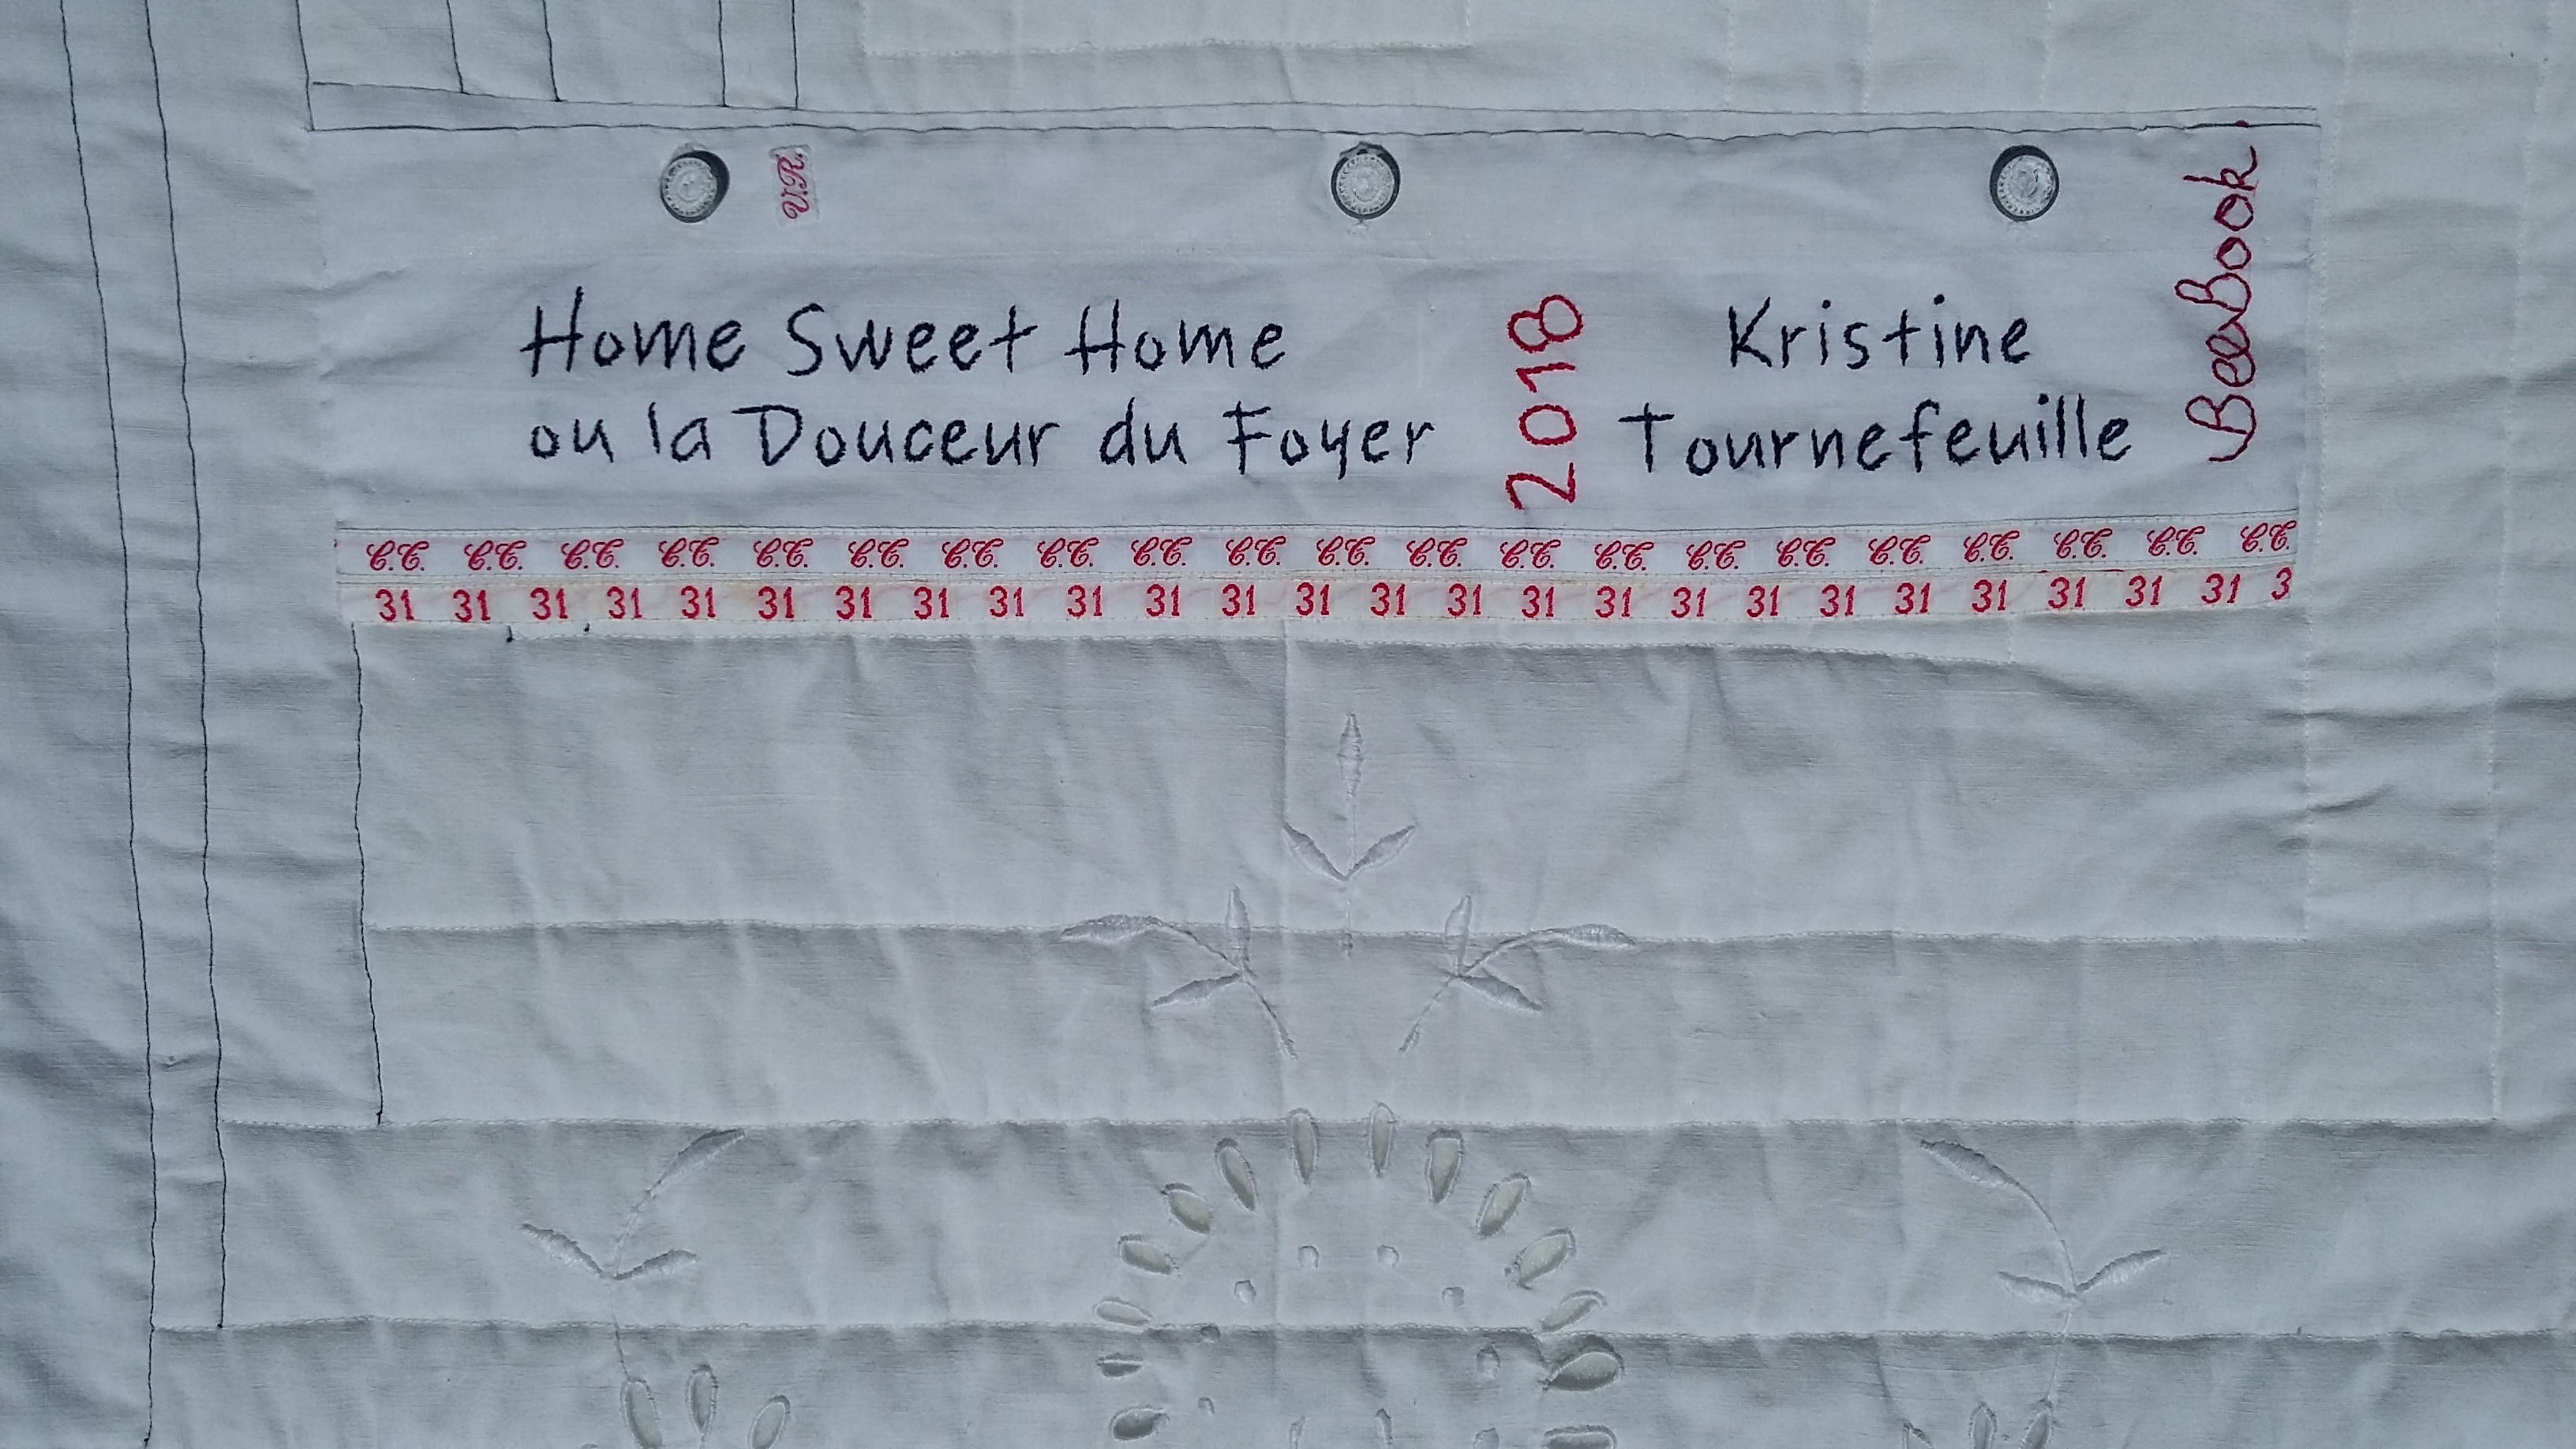 V.R.
Home Sweet Home
ou la Douceur du Foyer
2018
Kristine
Tournefeuille
Beebook.
C.C. C.C. C.C. C.C. C.C. C.C. C.C. C.C. C.C. C.C. C.C. C.C. C.C. C.C. C.C. C.C. C.C. C.C. C.C. C.C. C.C.
31 31 31 31 31 31 31 31 31 31 31 31 31 31 31 31 31 31 31 31 31 31 31 31 31 3